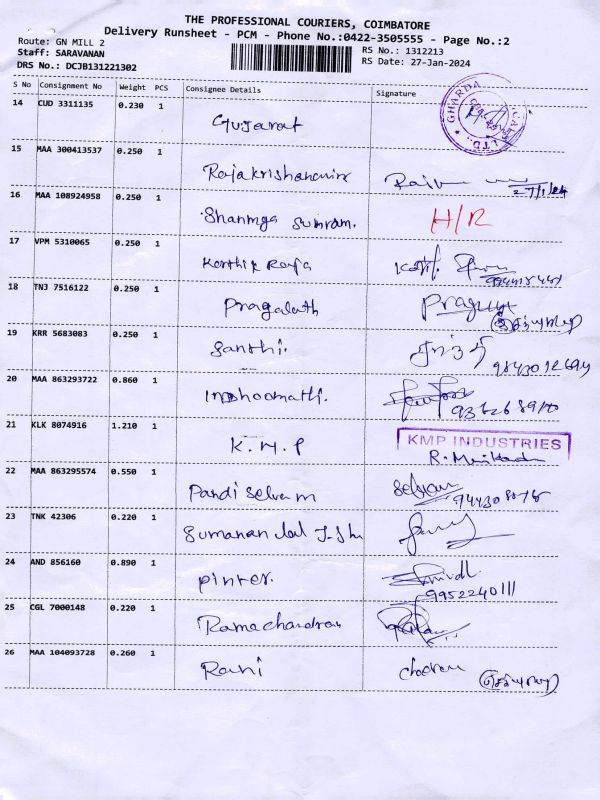 THE PROFESSIONAL COURIERS, COIMBATORE
Delivery Runsheet - PCM - Phone No.:0422-3505555 - Page No.:2
Route: GN MILL 2
RS No.: 1312213
Staff: SARAVANAN
RS Date: 27-Jan-2024
DRS No.: DCJB131221302
S No Consignment No Weight PCS Consignee Details Signature
14 CUD 3311135 0.230 1 Gujarat GHARDA LTD.
15 MAA 300413537 0.250 1 27/1/24
16 MAA 108924958 0.250 1 Shanmga Sunram. H/R
17 VPM 5310065 0.250 1 Karthik Raja
18 TNJ 7516122 0.250 1 Pragalath
19 KRR 5683083 0.250 1 Santhi. சாந்தி
20 MAA 863293722 0.860 1 Indhoomathi.
21 KLK 8074916 1.210 1 K.M.P KMP INDUSTRIES
22 MAA 863295574 0.550 1 Pandi Selvam
23 TNK 42306 0.220 1 Sumanan Lal
24 AND 856160 0.890 1 pinter.
9952240111
25 CGL 7000148 0.220 1 Ramachandran
26 MAA 104093728 0.260 1 Rani